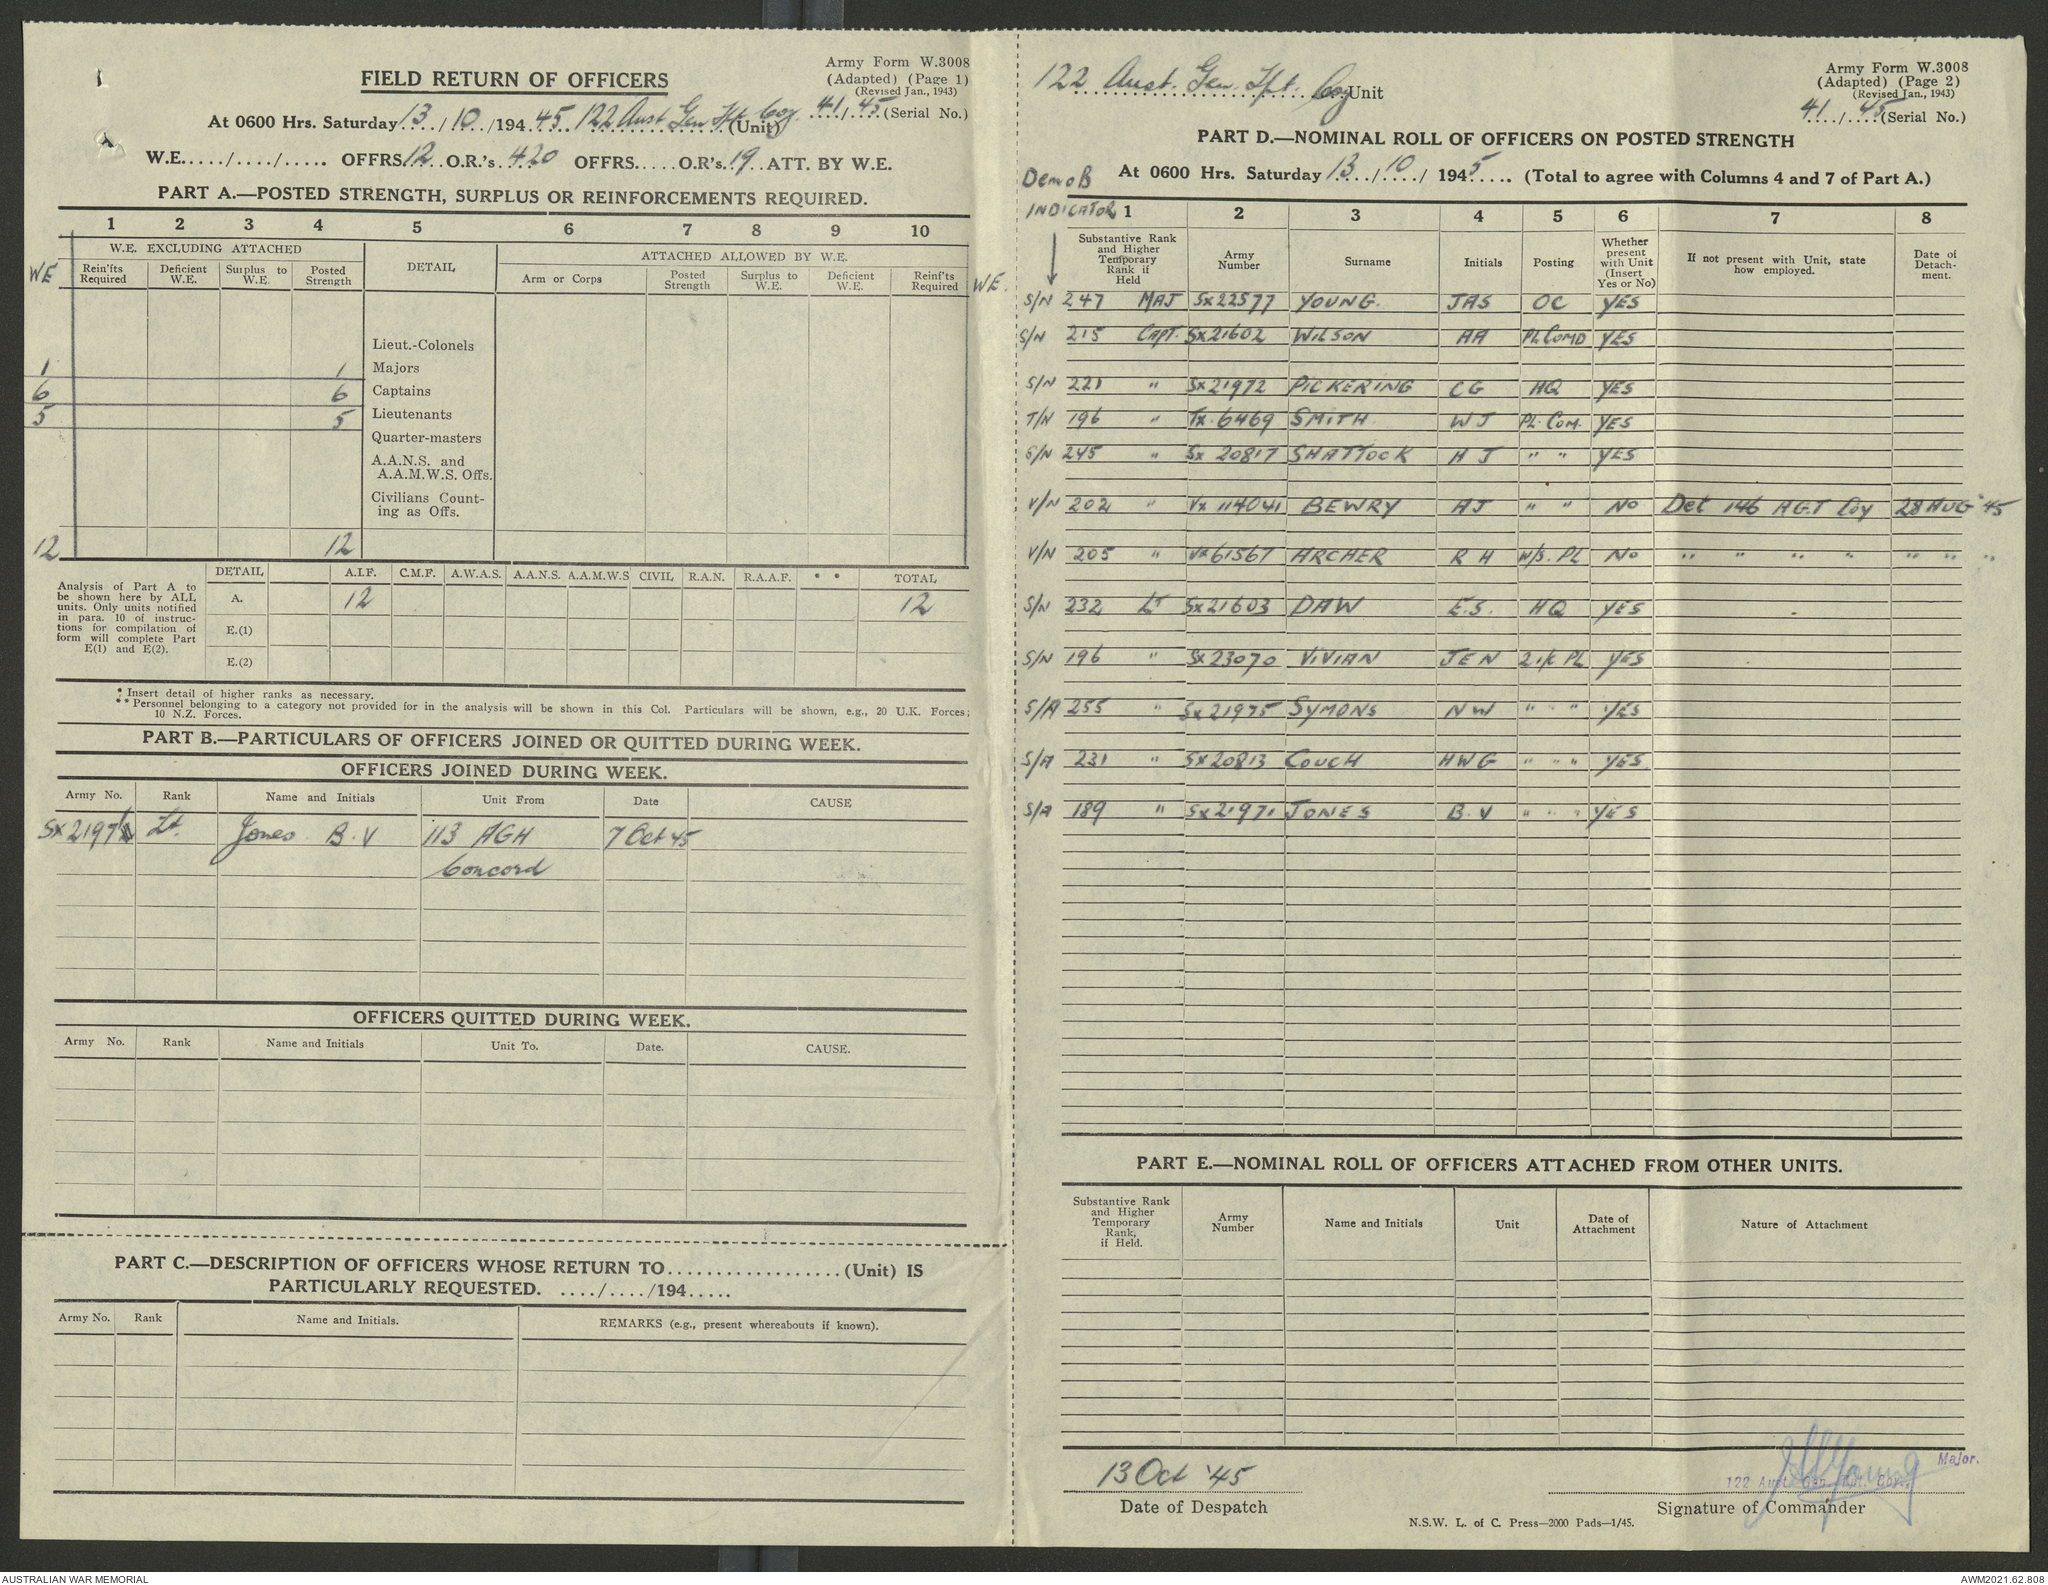 Army Form W.3008
(Adapted) (Page 1)
(Revised Jan., 1943)
FIELD RETURN OF OFFICERS
At 0600 Hrs. Saturday 13/10/1945 122 Aust Gen Tpt Coy (Unit) 41/45 (Serial No.)
W.E...../..../..... OFFRS 12 O.R.'s 420 OFFRS..... O.R's 19 ATT. BY W.E.
PART A.—POSTED STRENGTH, SURPLUS OR REINFORCEMENTS REQUIRED.
1 2 3 4 5 6 7 8 9 10
W.E. EXCLUDING ATTACHED DETAIL ATTACHED ALLOWED BY W.E.
WE Rein'fts Required Deficient W.E. Surplus to W.E. Posted Strength Arm or Corps Posted Strength Surplus to W.E. Deficient W.E. Reinf'ts Required WE.
Lieut.-Colonels
1 1 Majors
6 6 Captains
5 5 Lieutenants
Quarter-masters
A.A.N.S. and
A.A.M.W.S. Offs.
Civilians Count-
ing as Offs.
12 12
Analysis of Part A to
be shown here by ALL
units. Only units notified
in para. 10 of instruc-
tions for compilation of
form will complete Part
E(1) and E(2).
DETAIL A.I.F. C.M.F. A.W.A.S. A.A.N.S. A.A.M.W.S CIVIL R.A.N. R.A.A.F. * * TOTAL
A. 12 12
E.(1)
E.(2)
* Insert detail of higher ranks as necessary.
** Personnel belonging to a category not provided for in the analysis will be shown in this Col. Particulars will be shown, e.g., 20 U.K. Forces;
10 N.Z. Forces.
PART B.—PARTICULARS OF OFFICERS JOINED OR QUITTED DURING WEEK.
OFFICERS JOINED DURING WEEK.
Army No. Rank Name and Initials Unit From Date CAUSE
SX21971 Lt. Jones B.V 113 AGH 7 Oct 45
Concord
OFFICERS QUITTED DURING WEEK.
Army No. Rank Name and Initials Unit To. Date. CAUSE.
PART C.—DESCRIPTION OF OFFICERS WHOSE RETURN TO...................(Unit) IS
PARTICULARLY REQUESTED. ..../..../194.....
Army No. Rank Name and Initials. REMARKS (e.g., present whereabouts if known).
122 Aust. Gen. Tpt. Coy Unit
Army Form W.3008
(Adapted) (Page 2)
(Revised Jan., 1943)
41/45 (Serial No.)
PART D.—NOMINAL ROLL OF OFFICERS ON POSTED STRENGTH
At 0600 Hrs. Saturday 13/10/1945.... (Total to agree with Columns 4 and 7 of Part A.)
DEMOB
INDICATOR 1 2 3 4 5 6 7 8
Substantive Rank and Higher Temporary Rank if Held Army Number Surname Initials Posting Whether present with Unit (Insert Yes or No) If not present with Unit, state how employed. Date of Detach-ment.
S/N 247 MAJ SX22577 YOUNG. JAS OC YES
S/N 215 CAPT. SX21602 WILSON AA PL COMD YES
S/N 221 " SX21972 PICKERING CG HQ YES
T/N 196 " TX.6469 SMITH WJ PL. COM. YES
S/N 245 " SX 20817 SHATTOCK H J " " YES
V/N 202 " VX 114041 BEWRY AJ " " NO Det 146 AGT Coy 28 AUG '45
V/N 205 " VX61567 ARCHER R H W/S. PL NO " " " " " " "
S/N 232 LT SX21603 DAW E.S. HQ YES
S/N 196 " SX23070 VIVIAN JEN 2i/c PL YES
S/A 255 " SX21975 SYMONS NW " " " YES
S/A 231 " SX20813 COUCH HWG " " " YES
S/A 189 " SX21971 JONES B.V " " " YES
PART E.—NOMINAL ROLL OF OFFICERS ATTACHED FROM OTHER UNITS.
Substantive Rank and Higher Temporary Rank, if Held. Army Number Name and Initials Unit Date of Attachment Nature of Attachment
13 Oct '45
Date of Despatch
JAS Young Major.
122 Aust. Gen. Tpt. Coy.
Signature of Commander
N.S.W. L. of C. Press—2000 Pads—1/45.
AUSTRALIAN WAR MEMORIAL AWM2021.62.808